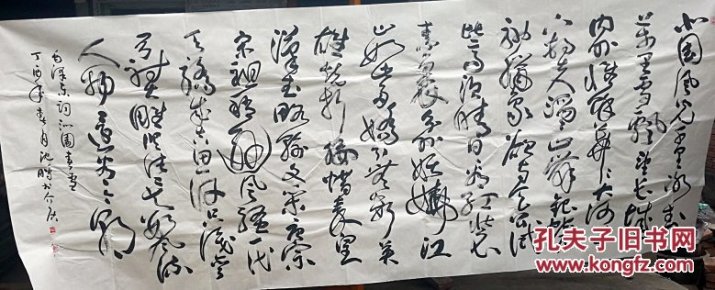 北国风光千里冰封
万里雪飘望长城
内外惟馀莽莽大河
上下顿失滔滔山舞银蛇
原驰蜡象欲与天公试
比高须晴日看红装
素裹分外妖娆江
山如此多娇引无数英
雄竞折腰惜秦皇
汉武略输文采唐宗
宋祖稍逊风骚一代
天骄成吉思汗只识弯
弓射大雕俱往矣数风流
人物还看今朝
毛泽东词沁园春雪
丁酉年春月沈胜书
孔夫子旧书网
www.kongfz.com